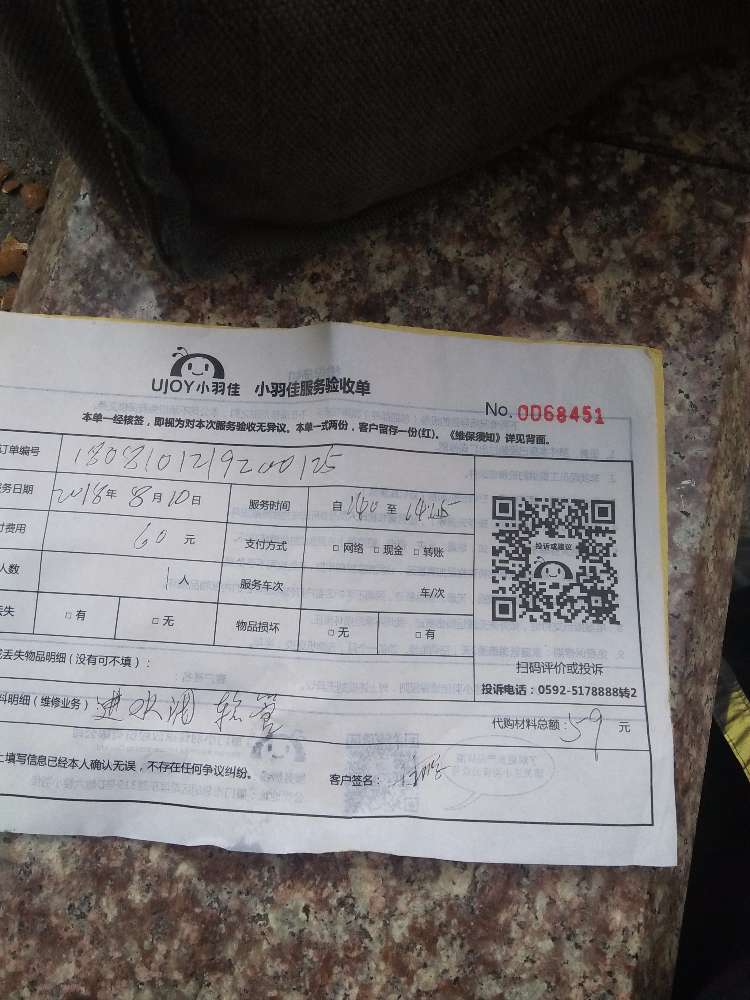 UJOY小羽佳 小羽佳服务验收单
No. 0068451
本单一经核签，即视为对本次服务验收无异议。本单一式两份，客户留存一份(红)。《维保须知》详见背面。
订单编号 1808101219200125
务日期 2018年8月10日 服务时间 自 至
付费用 60元 支付方式 □网络 □现金 □转账
人数 1人 服务车次 车/次
丢失 □有 □无 物品损坏 □无 □有
投诉或建议
扫码评价或投诉
投诉电话：0592-5178888转2
丢失物品明细（没有可不填）：
料明细（维修业务） 进水 软管
代购材料总额：59元
上填写信息已经本人确认无误，不存在任何争议纠纷。 客户签名：